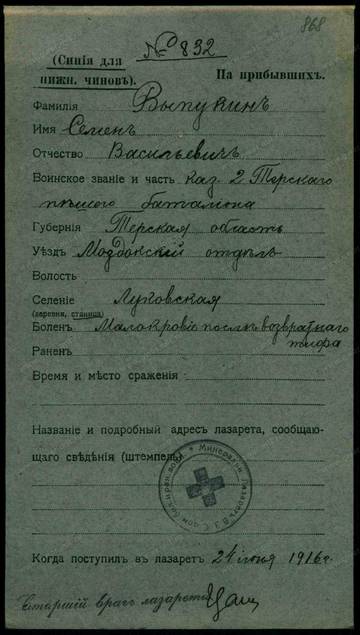 868
№ 832
(Синія для
нижн. чиновъ).
На прибывшихъ.
Фамилія Выпукинъ
Имя Семенъ
Отчество Васильевичъ
Воинское званіе и часть каз. 2 Терскаго
пѣшого баталіона
Губернія Терская область
Уѣздъ Моздокскій отдѣлъ
Волость
Селеніе Луковская
(деревня, станица)
Боленъ Малокровіе послѣ возвратнаго
тифа
Раненъ
Время и мѣсто сраженія
Названіе и подробный адресъ лазарета, сообщаю-
щаго свѣдѣнія (штемпель)
Когда поступилъ въ лазаретъ 24 іюня 1916 г.
Старшій врач лазарета